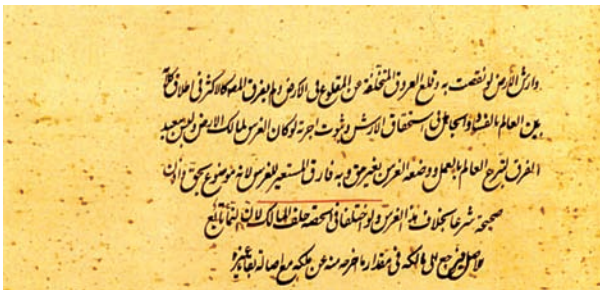 وارش الأرض لو نقصت به وقلع العروق المتخلفة عن المقلوع في الأرض ولم يفرق المصـ كالأكثر في اطلاق كلامه
بين العالم بالفساد والجاهل في استحقاق الارش وثبوت اجرته لو كان الغرس لمالك الارض وليس ببعيد
الفرق لتبرع العالم بالعمل ووضعه الغرس بغير حق وبه فارق المستعير للغرس لانه موضوع بحق واذن
صحيحة شرعا بخلاف هذا الغرس ولو اختلفا في الحصة حلف المالك لأن النماء تابع
للأصل فيرجع إلى مالكه في مقدار ما اخرجه منه عن ملكه مع اصالة بقاء غيره